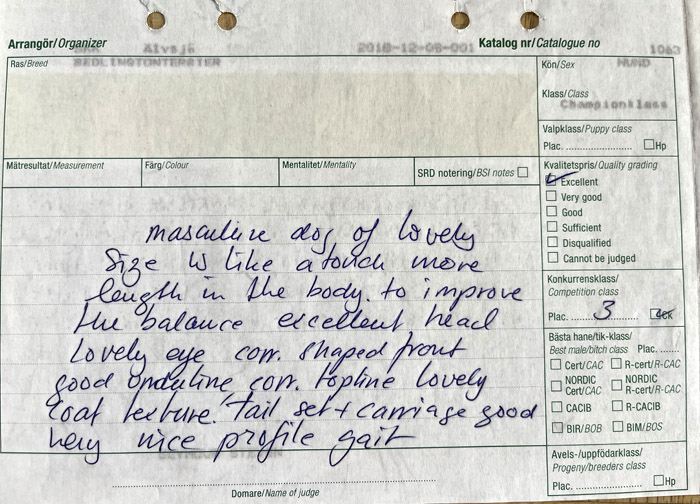 Arrangör/Organizer SKK Älvsjö 2018-12-08-001 Katalog nr/Catalogue no 1063
Ras/Breed BEDLINGTONTERRIER
Kön/Sex HUND
Klass/Class
Championklass
Valpklass/Puppy class
Plac. ☐Hp
Mätresultat/Measurement Färg/Colour Mentalitet/Mentality SRD notering/BSI notes ☐
Kvalitetspris/Quality grading
☑ Excellent
☐ Very good
☐ Good
☐ Sufficient
☐ Disqualified
☐ Cannot be judged
Konkurrensklass/
Competition class
Plac. 3 ☐CK
Bästa hane/tik-klass/
Best male/bitch class Plac.
☐ Cert/CAC ☐ R-cert/R-CAC
☐ NORDIC Cert/CAC ☐ NORDIC R-cert/R-CAC
☐ CACIB ☐ R-CACIB
☐ BIR/BOB ☐ BIM/BOS
Avels-/uppfödarklass/
Progeny/breeders class
Plac. ☐Hp
masculine dog of lovely
size is like a touch more
length in the body. to improve
the balance excellent head
Lovely eye corr. shaped front
good underline corr. topline lovely
coat texture. tail set + carriage good
very nice profile gait
Domare/Name of judge